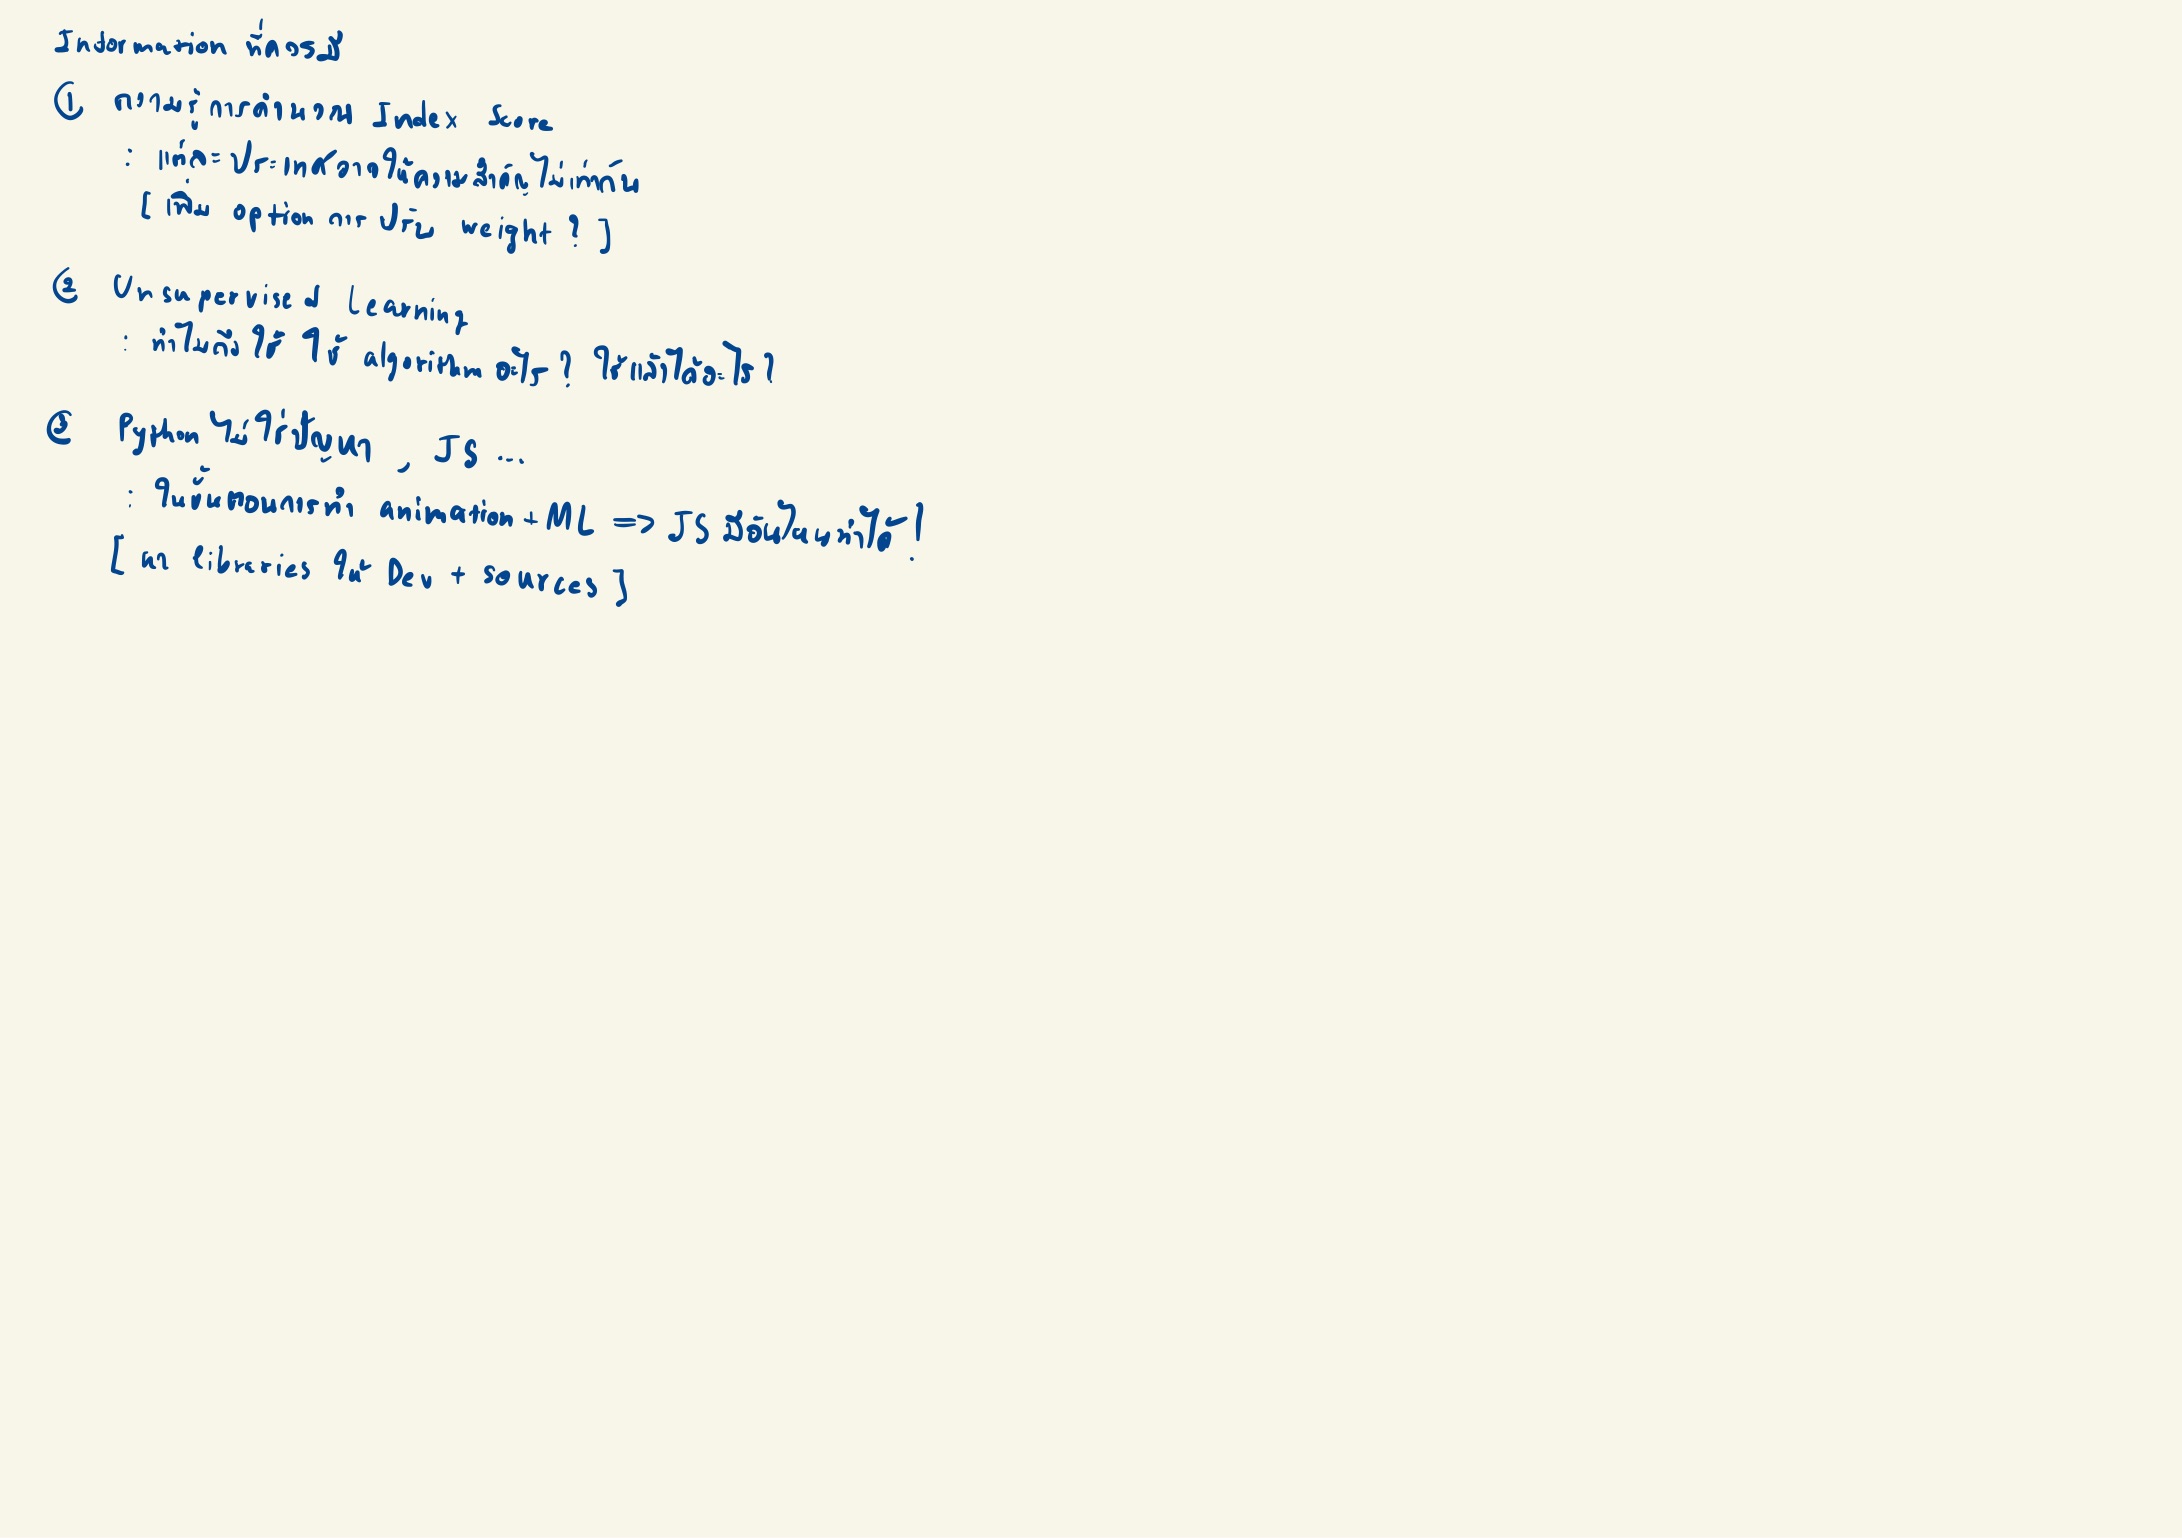 Information ที่ควรมี
① ความรู้การคำนวณ Index Score
: แต่ละประเทศอาจให้ความสำคัญไม่เท่ากัน
[ เพิ่ม option การ ปรับ weight ? ]
② Unsupervised Learning
: ทำไมถึงใช้ ใช้ algorithm อะไร ? ใช้แล้วได้อะไร ?
③ Python ไม่ใช่ปัญหา , JS ...
: ในขั้นตอนการทำ animation + ML => JS มีอันไหนทำได้ !
[ หา libraries ให้ Dev + sources ]